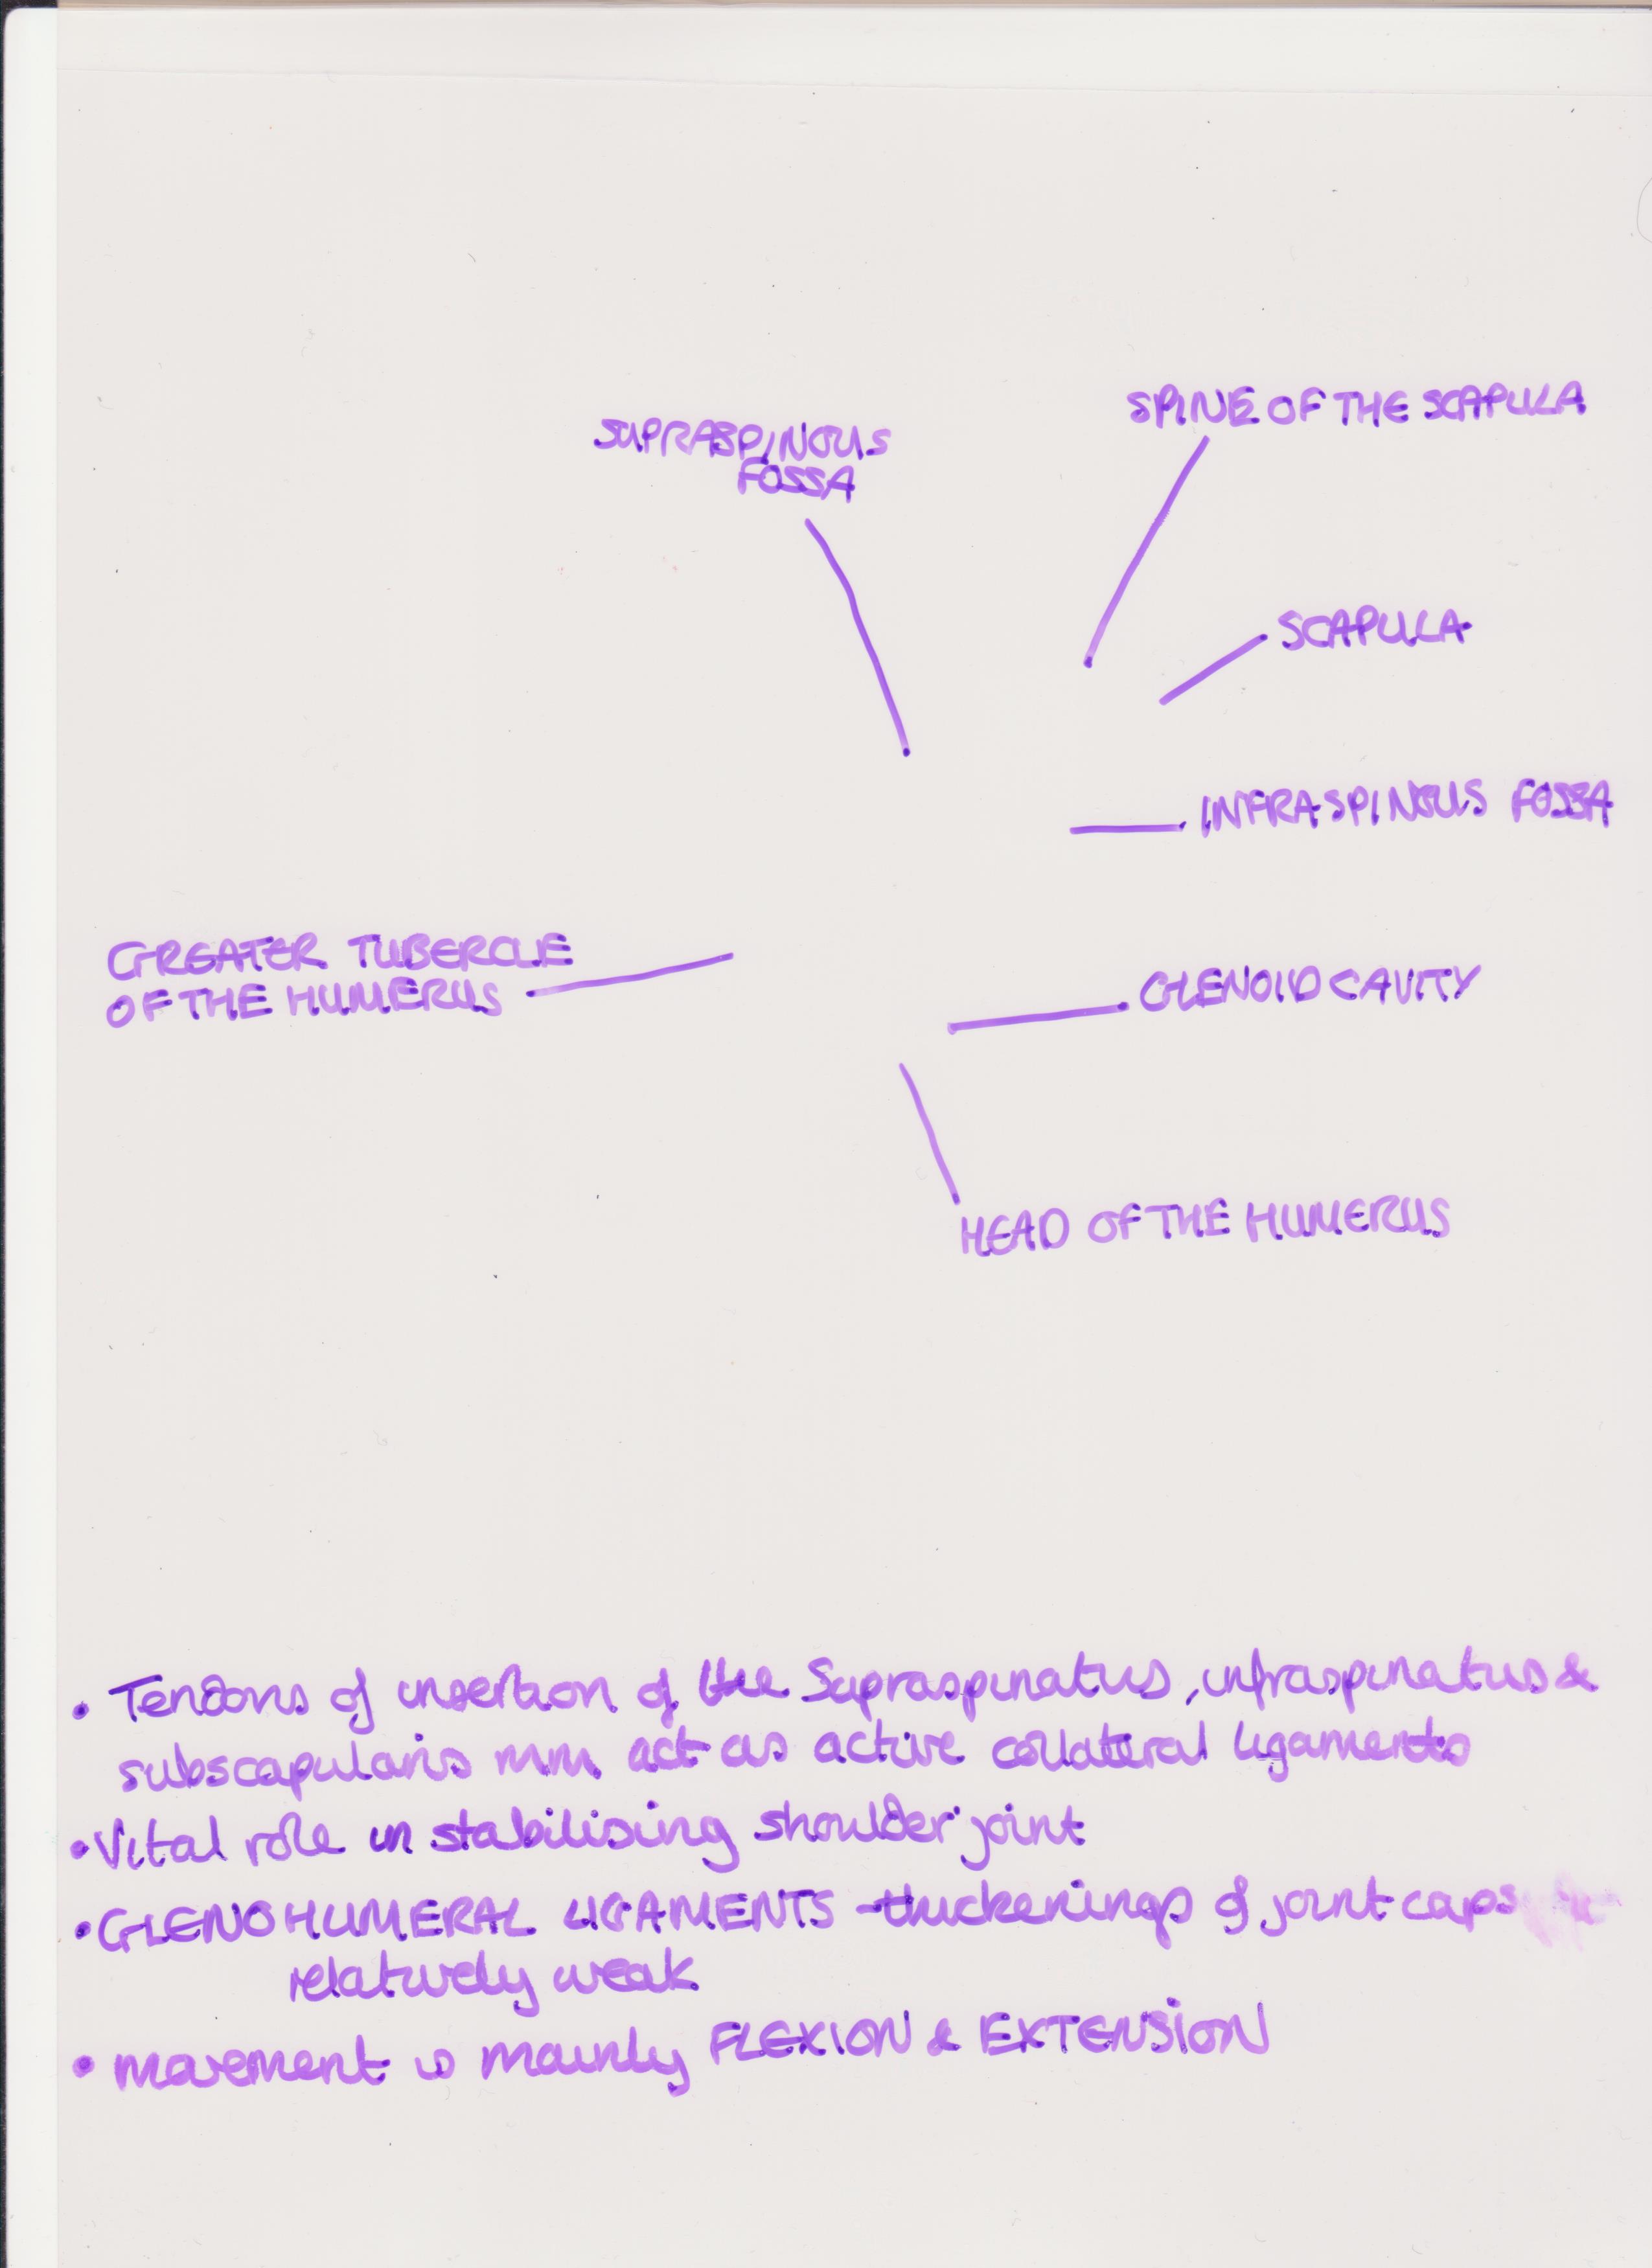 SPINE OF THE SCAPULA
SUPRASPINOUS
FOSSA
SCAPULA
INFRASPINOUS FOSSA
GREATER TUBERCLE
OF THE HUMERUS
GLENOID CAVITY
HEAD OF THE HUMERUS
• Tendons of insertion of the Supraspinatus, infraspinatus &
subscapularis mm. act as active collateral ligaments
• Vital role in stabilising shoulder joint
• GLENOHUMERAL LIGAMENTS - thickenings of joint caps
relatively weak
• movement is mainly FLEXION & EXTENSION